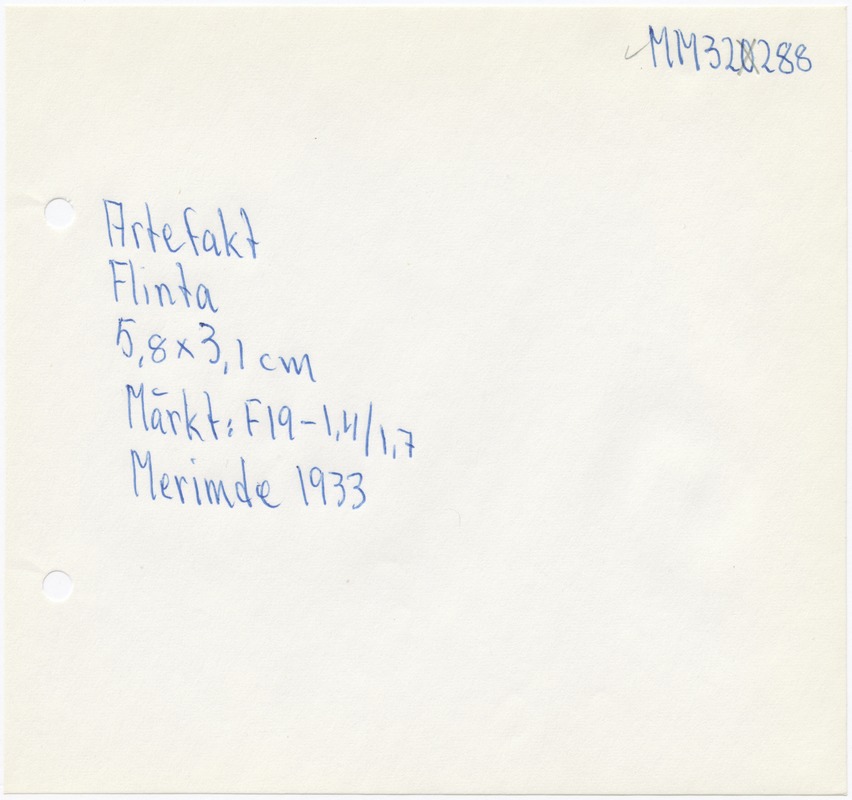 MM32288
Artefakt
Flinta
5,8 x 3,1 cm
Märkt: F19-1,4/1,7
Merimde 1933